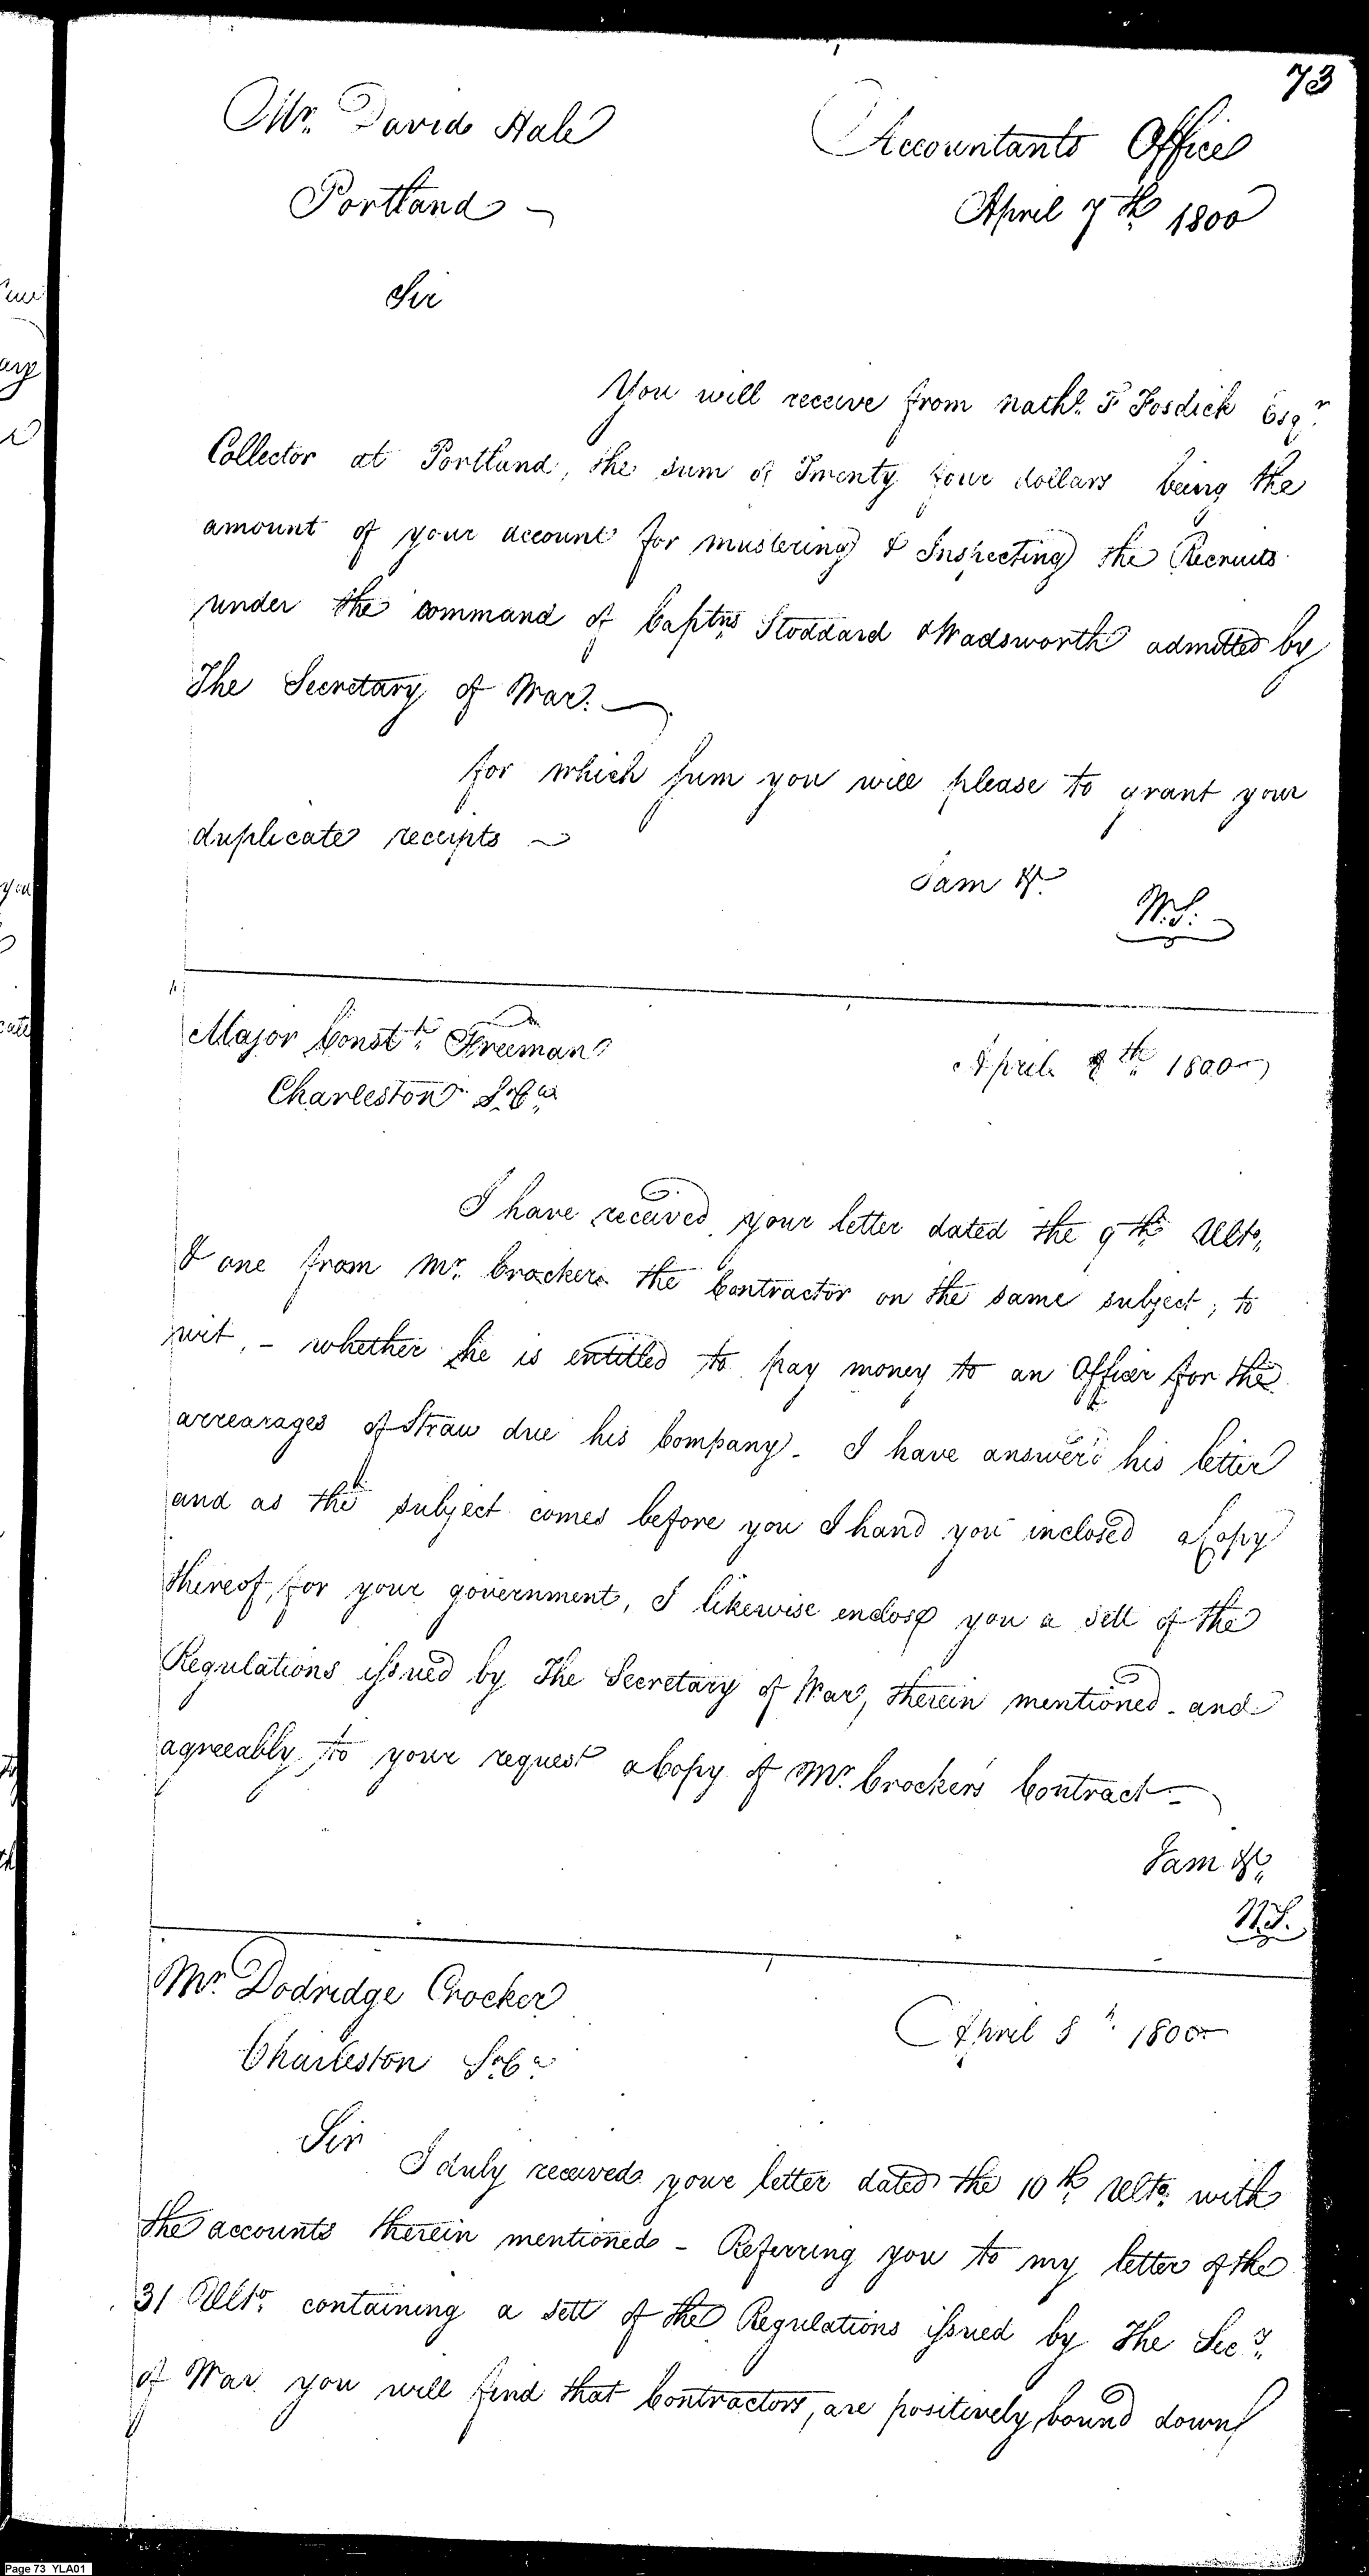 73
Mr. David Hale
Accountants Office
Portland
April 7th 1800
Sir
You will receive from Nathl. F Fosdick Esqr.
Collector at Portland, the sum of Twenty four dollars being the
amount of your account for mustering & Inspecting the Recruits
under the command of Captns Stoddard & Wadsworth admitted by
The Secretary of War.
for which sum you will please to grant your
duplicate receipts
I am &c
W.S.
Major Constt. Freeman
April 8th 1800
Charleston So. Ca
I have received your letter dated the 9th Ulto,
& one from Mr. Crocker the Contractor on the same subject; to
wit, - whether he is entitled to pay money to an Officer for the
arrearages of Straw due his Company. I have answer'd his letter
and as the subject comes before you I hand you inclosed a Copy
thereof, for your government, I likewise enclose you a sett of the
Regulations issued by The Secretary of War, therein mentioned - and
agreeably to your request a Copy of Mr. Crocker's Contract
I am &c
W.S.
Mr. Dodridge Crocker
April 8h. 1800
Charleston So. Ca
Sir
I duly received your letter dated the 10th Ulto. with
the accounts therein mentioned - Referring you to my letter of the
31 Ulto. containing a sett of the Regulations issued by The Secy.
of War you will find that Contractors, are positively bound down
Page 73 YLA01